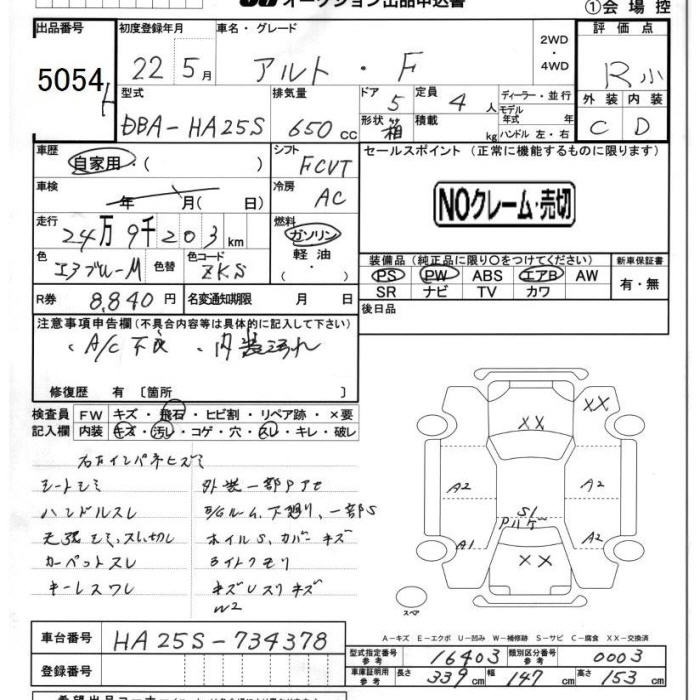 オークション出品申込書
①会場控
出品番号 初度登録年月 車名・グレード 2WD・4WD 評価点
5054 22 5月 アルト・F R小
型式 排気量 ドア 5 定員 4人 ディーラー・並行 外装 内装
DBA-HA25S 650cc 形状 箱 積載 kg モデル年式 年 ハンドル 左・右 C D
車歴 自家用・( ) シフト FCVT
セールスポイント (正常に機能するものに限ります)
車検 年 月( 日) 冷房 AC
NOクレーム・売切
走行 24万9千203km 燃料 ガソリン 軽油・( ・ )
装備品 (純正品に限り○をつけてください) 新車保証書
色 エアブルーM 色替 色コード ZKS
PS PW ABS エアB AW 有・無
SR ナビ TV カワ
R券 8,840円 名変通知期限 月 日
後日品
注意事項申告欄 (不具合内容等は具体的に記入して下さい)
・A/C不良 ・内装汚れ
修復歴 有 〔箇所 〕
検査員記入欄 FW キズ・飛石・ヒビ割・リペア跡・×要
内装 キズ・汚レ・コゲ・穴・スレ・キレ・破レ
右左インパネヒズミ
シートシミ 外装一部アセ
ハンドルスレ E/Gルーム、下廻り、一部S
天張シミ、スレ、切レ ホイルS、カバーキズ
カーペットスレ ライトクモリ
キーレスワレ キズUスリキズ
W2
XX
XX
A2 A2
S1
A1 A2
XX
スペア
A-キズ E-エクボ U-凹み W-補修跡 S-サビ C-腐食 XX-交換済
車台番号 HA25S-734378
型式指定番号 参考 16403 類別区分番号 参考 0003
登録番号
車庫証明用 参考 長さ 339cm 幅 147cm 高さ 153cm